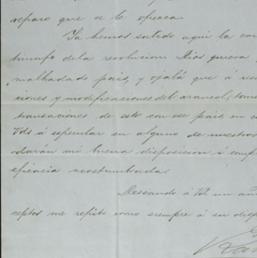 reparo que se le ofrezca.
Ya hemos sabido aquí la con
triunfo de la revolucion. Dios quiera q
malhadado pais, y ojalá que á
ciones y modificaciones del arancel, tome
transacciones de esto con ese pais en
Vds á especular en alguno de nuestros
odrán mi buena disposicion á comp
eficacia acostumbrada.
Deseando á Vd un
me repito como siempre á su disp